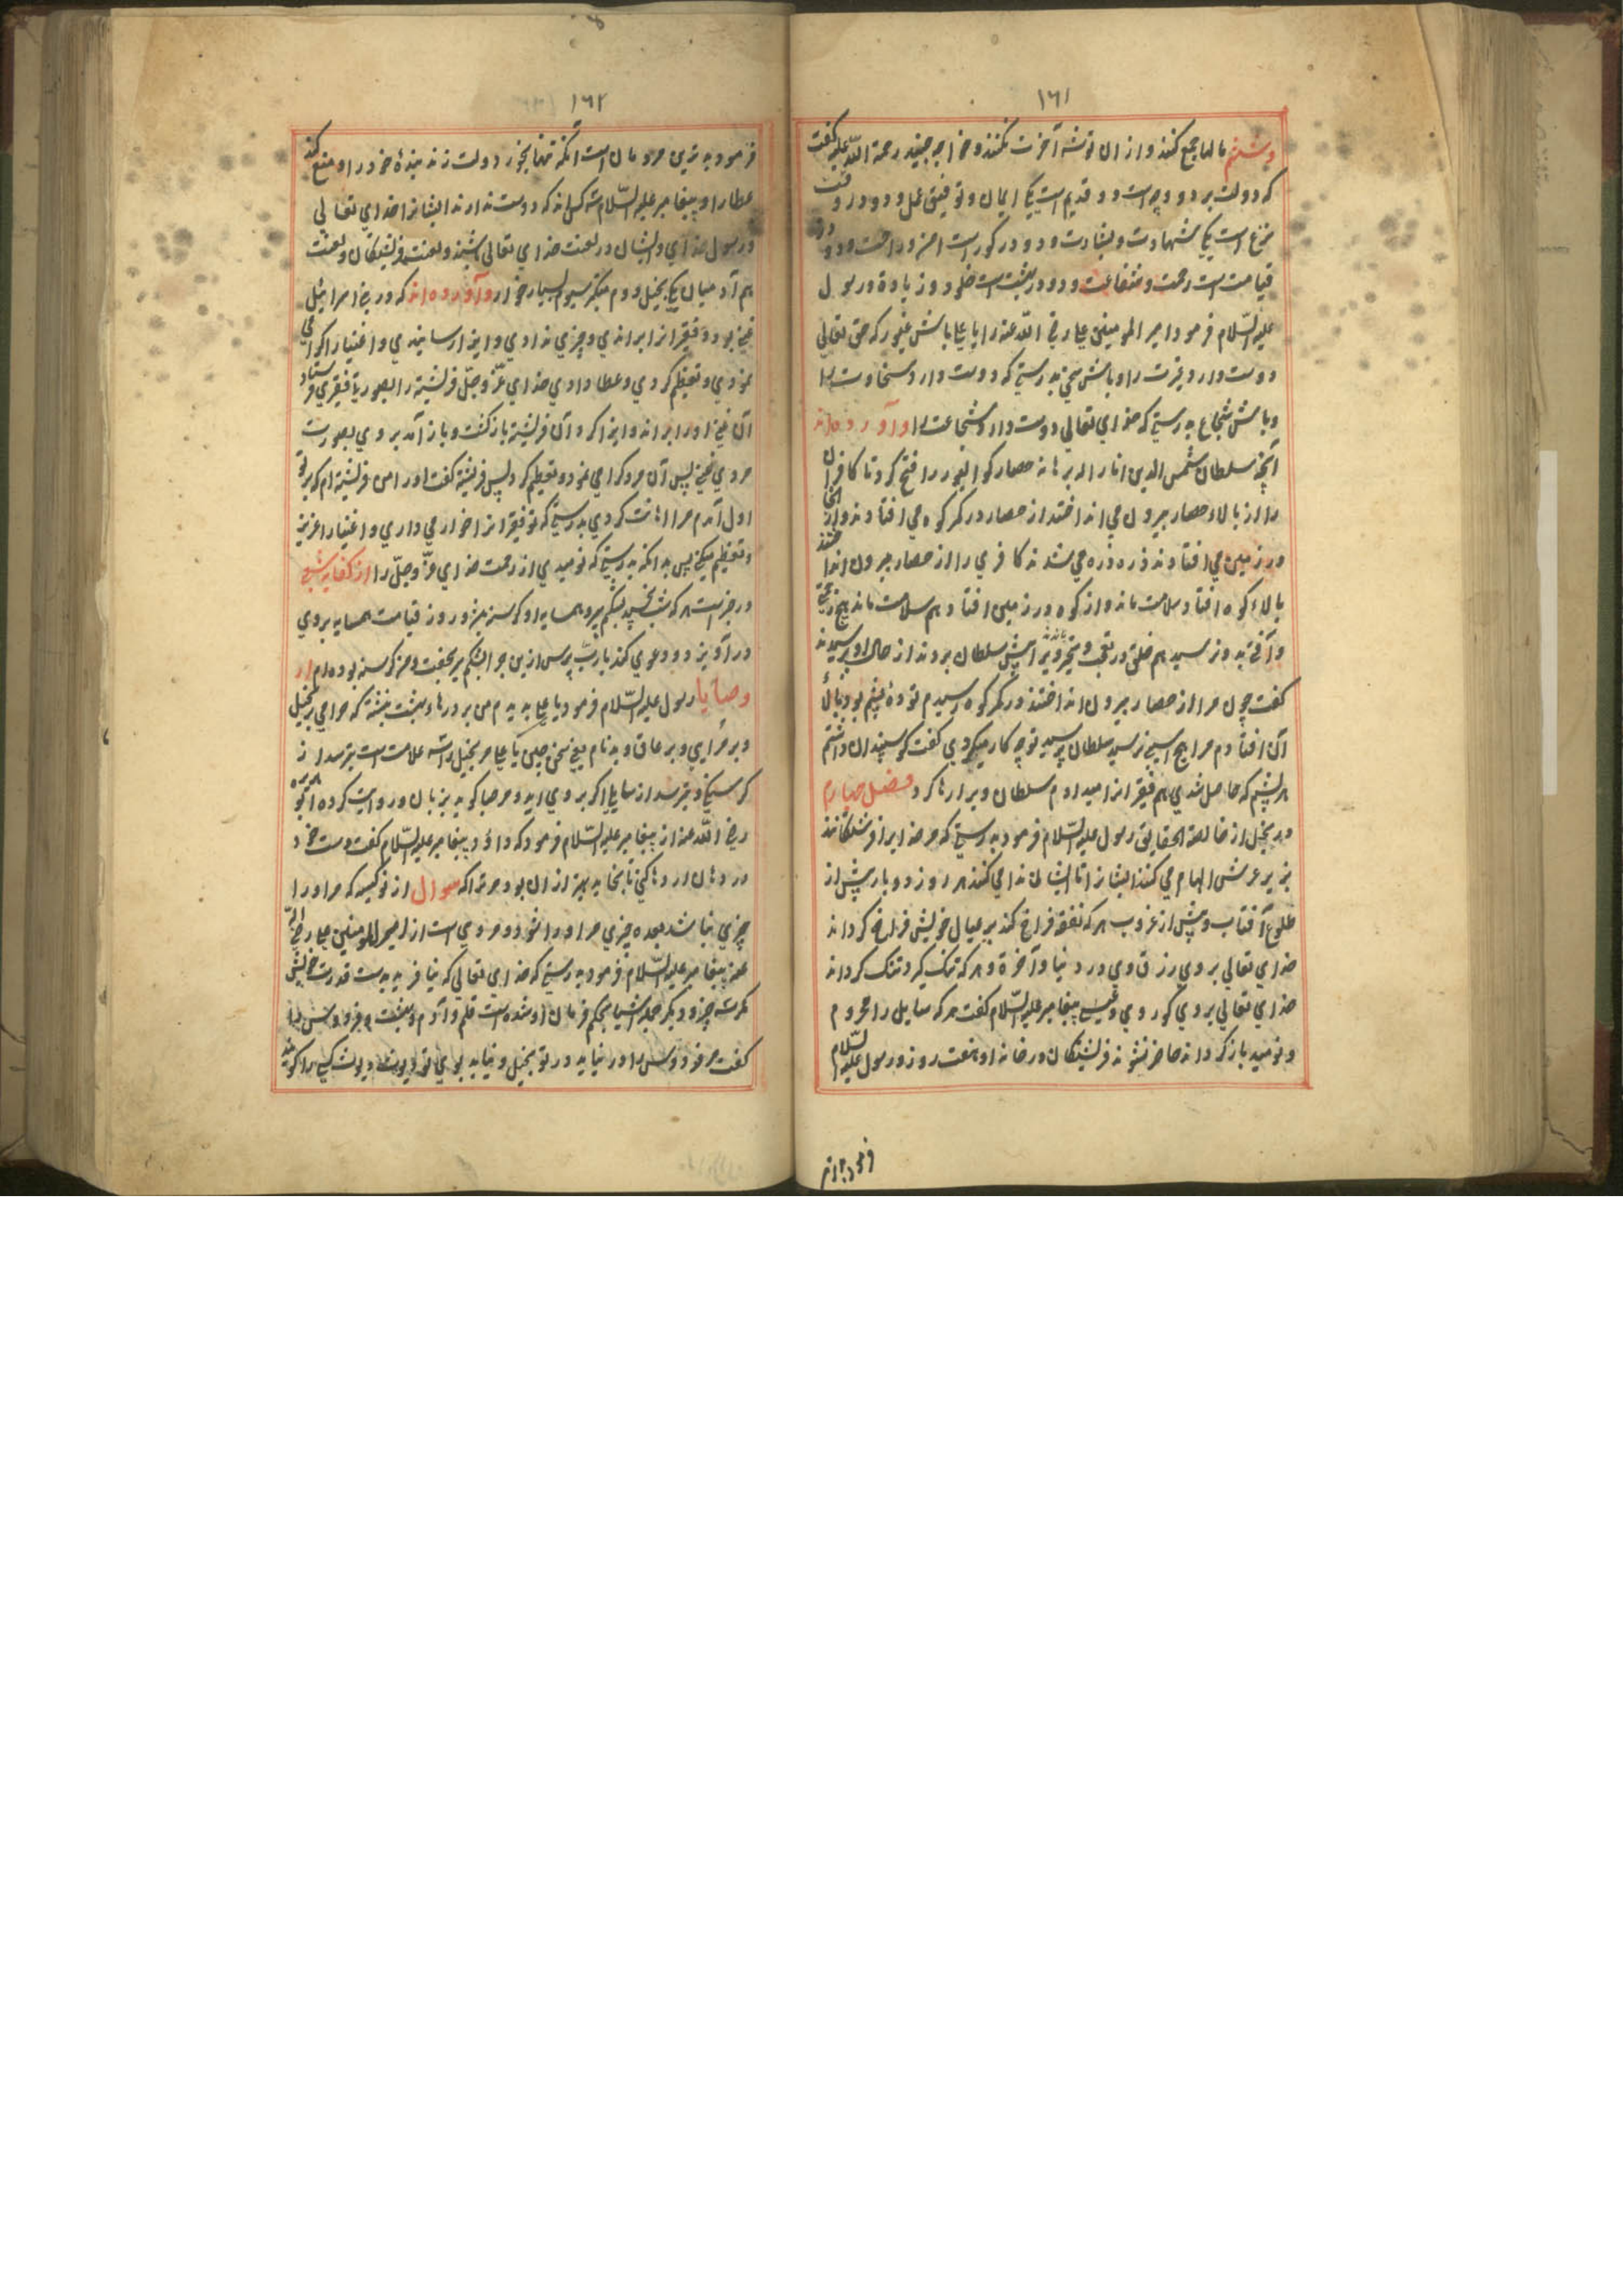 ١٦١
وششم مالها جمع کنند و از ان توشه آخرت نکنند و خواجه جنید رحمة الله علیه گفت
که دولت بر دو وجه است دو قدیم است یکی ایمان و توفیق عمل و دو در وقت
نزع است یکی شهادت و بشارت و دو در گور است امن و راحت و دو در
قیامت است رحمت و شفاعت و دو در بهشت است خلود و زیادة و رسول
علیه السّلام فرمود امیر المومنین علی رضی الله عنه را یا علی باش غیور که حق تعالی
دوست دارد غیرت را و باش سخی بدرستی که دوست دارد سخاوت را
و باش شجاع بدرستی که خدای تعالی دوست دارد شجاعت را و آورده اند
آنچه سلطان شمس الدین انار الله برهانه حصار کوالیور را فتح کرد تا کافران
را از بالاء حصار بیرون می انداختند از حصار در کمر کوه می افتادند و از انجا
در زمین می افتادند ذره ذره می شدند کافری را از حصار بیرون انداختند
بالاء کوه افتاد سلامت ماند و از کوه در زمین افتاد هم سلامت ماند هیچ زحمتی
و آفتی بدو نرسید هم خلق در تعجب و متحیر ماندند ویرا پیش سلطان بردند از حال او پرسیدند
گفت چون مرا از حصار بیرون انداختند در کمر کوه رسیدم تودهٔ پشم بود بالای
آن افتادم مرا هیچ آسیبی نرسید سلطان پرسید تو چه کار میکردی گفت گوسپندان داشتم
هر پشم که حاصل شدی هم فقیرانرا میدادم سلطان ویرا رها کرد فصل چهارم
در بخیل از خالصة الحقایق رسول علیه السّلام فرمود بدرستی که مر خدایرا فرشتگانند
بزیر عرش الهام می کنند ایشانرا تا ایشان ندا می کنند هر روز دو بار پیش از
طلوع آفتاب و پیش از غروب هر که نفقه فراخ کند بر عیال خویش فراخ گرداند
خدای تعالی بر وی رزق وی در دنیا و آخرة و هر که تنگ گیرد تنگ گرداند
خدای تعالی بر وی گور وی پیغامبر علیه السّلام گفت هر که سایل را محروم
و نومید باز گرداند حاضر نشوند فرشتگان در خانه او هفت روز و رسول علیه السّلام
١٦٢
فرمود بدترین مردمان است آنکه تنها بخورد و لت زند بندهٔ خود را و منع کند
عطا را و پیغامبر علیه السّلام سه کس اند که دوست ندارند ایشانرا خدای تعالی
و رسول خدای و ایشان در لعنت خدای تعالی باشند و لعنت فریشتگان و لعنت
هم آدمیان یکی بخیل و دوم متکبر سیوم بسیار خوار و آورده اند که در بنی اسرائیل
غنی بود و فقیرانرا براندی و چیزی ندادی و ایذا رسانیدی و اغنیا را اکرامی
نمودی و تعظیم کردی و عطا دادی خدای عزّ و جلّ فریشته را بصورت فقیری فرستاد
آن غنی او را براند و ایذا کرد آن فریشته بازگشت و باز آمد بر وی بصورت
مردی غنی پس آن مرد گرامی نمود و تعظیم کرد پس فریشته گفت او را من فریشته ام که بر تو
اول آمدم مرا اهانت کردی بدرستی که تو فقیرانرا خوار می داری و اغنیا را عزیز
و تعظیم میکنی پس بدانکه بدرستی که نومیدی از رحمت خدای عزّ و جلّ را از کفایه شعبی
در خبر است هر که شب بخسپد شکم پر و همسایه او گرسنه بود روز قیامت همسایه بر وی
در آویزد و دعوی کند یا ربّ پرس ازین چرا شکم پر بخفت و من گرسنه بوده ام از
وصایا رسول علیه السّلام فرمود یا علی بدیدم من بر درهاء بهشت نبشته که حرام بر بخیل
و بر مرایی و بر عاق و بد نام یعنی سخن چین یا علی مر بخیل را سه علامت است بترسد از
گرسنگی و بترسد از سایل اگر بر وی آید و مرحبا گوید بزبان و روایت کرده ابو هریره
رضی الله عنه از پیغامبر علیه السّلام فرمود که داؤد پیغامبر علیه السّلام گفت دست خود
در دهان اژدها کنی تا بخاید بهتر از ان بود مر ترا که سوال از نو کیسه که مر او را
چیزی نباشد بعده چیزی مر او را شود و مروی است از امیر المومنین علی رضی الله
عنه پیغامبر علیه السّلام فرمود بدرستی که خدای تعالی که نیافرید بدست قدرت خویش
مگر سه چیز و دیگر جمله اشیا بحکم فرمان او شده است قلم و آدم و بهشت فردوس پس
گفت مر فردوس را در نیاید در تو بخیل و نیابد بوی تو دیوث و دیوث کسی را گویند